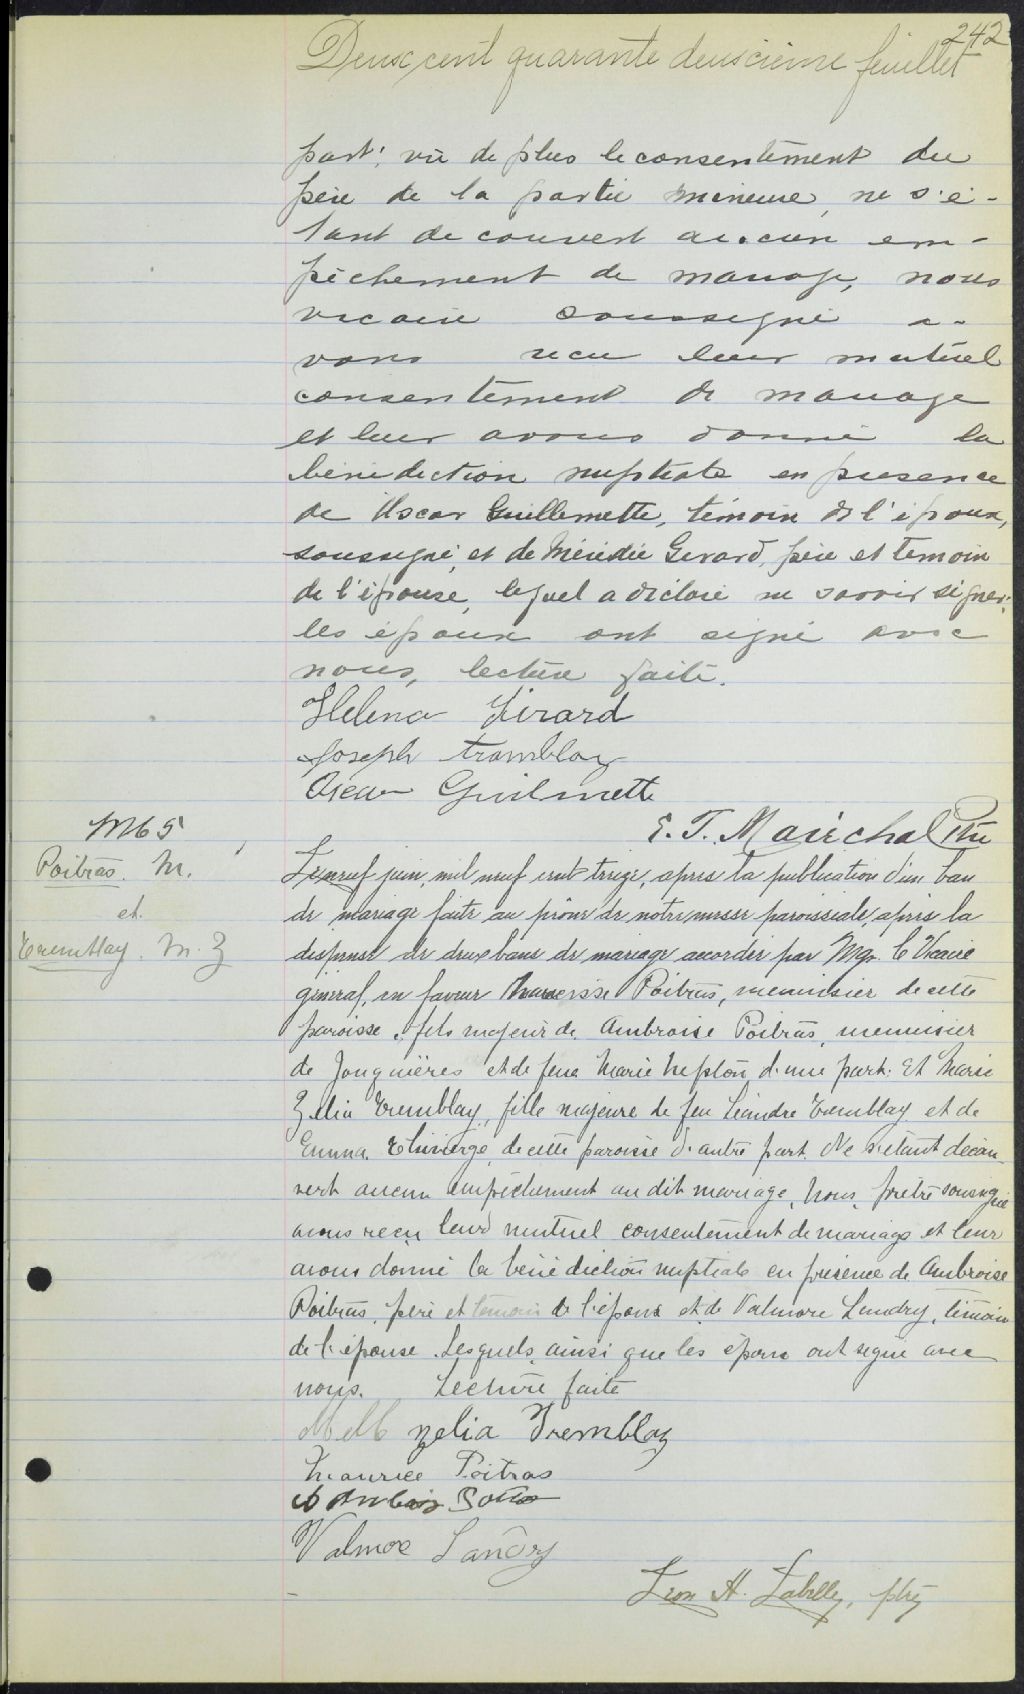 242
Deux cent quarante deuxième feuillet
part; vu de plus le consentement du
père de la partie mineure, ne s'é-
tant découvert aucun em-
pêchement de mariage, nous
vicaire soussigné a-
vons reçu leur mutuel
consentement de mariage
et leur avons donné la
bénédiction nuptiale en présence
de Oscar Guillemette, témoin de l'époux,
soussigné, et de Méridée Gerard, père et temoin
de l'épouse, lequel a déclaré ne savoir signer;
les époux ont signé avec
nous, lecture faite.
Helena Girard
Joseph tremblay
Oscar Guilmette
E. T. Maréchal Ptre
M65
Poitras. M.
et.
Tremblay. M. Z
Le neuf juin, mil neuf cent treize, après la publication d'un ban
de mariage faite au prône de notre messe paroissiale, après la
dispense de deux bans de mariage accordée par Mgr. le Vicaire
général, en faveur Poitras, menuisier de cette
paroisse, fils majeur de Ambroise Poitras, menuisier
de Jonquières et de feue Marie Nepton d'une part: Et Marie
Zelia Tremblay, fille majeure de feu Léandre Tremblay et de
Emma Thivierge, de cette paroisse d'autre part. Ne s'étant décou-
vert aucun empêchement au dit mariage, Nous, prêtre soussigné
avons reçu leur mutuel consentement de mariage et leur
avons donné la bénédiction nuptiale en présence de Ambroise
Poitras, père et témoin de l'époux et de Valmore Landry, témoin
de l'épouse. Lesquels, ainsi que les époux ont signé avec
nous. Lecture faite
zelia Tremblay
Maurice Poitras
Valmore Landry
Leon H. Labelle, ptre